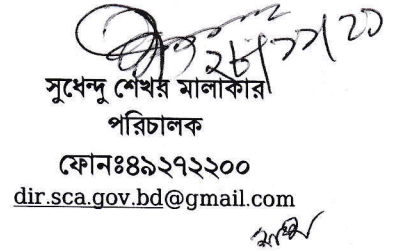 সুধেন্দু শেখর মালাকার
পরিচালক
ফোনঃ৪৯২৭২২০০
dir.sca.gov.bd@gmail.com